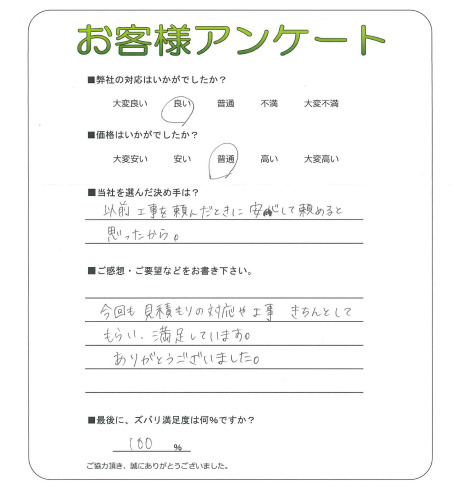 お客様アンケート
■弊社の対応はいかがでしたか？
大変良い 良い 普通 不満 大変不満
■価格はいかがでしたか？
大変安い 安い 普通 高い 大変高い
■当社を選んだ決め手は？
以前工事を頼んだときに安心して頼めると
思ったから。
■ご感想・ご要望などをお書き下さい。
今回も見積もりの対応や工事 きちんとして
もらい、満足しています。
ありがとうございました。
■最後に、ズバリ満足度は何%ですか？
100 %
ご協力頂き、誠にありがとうございました。